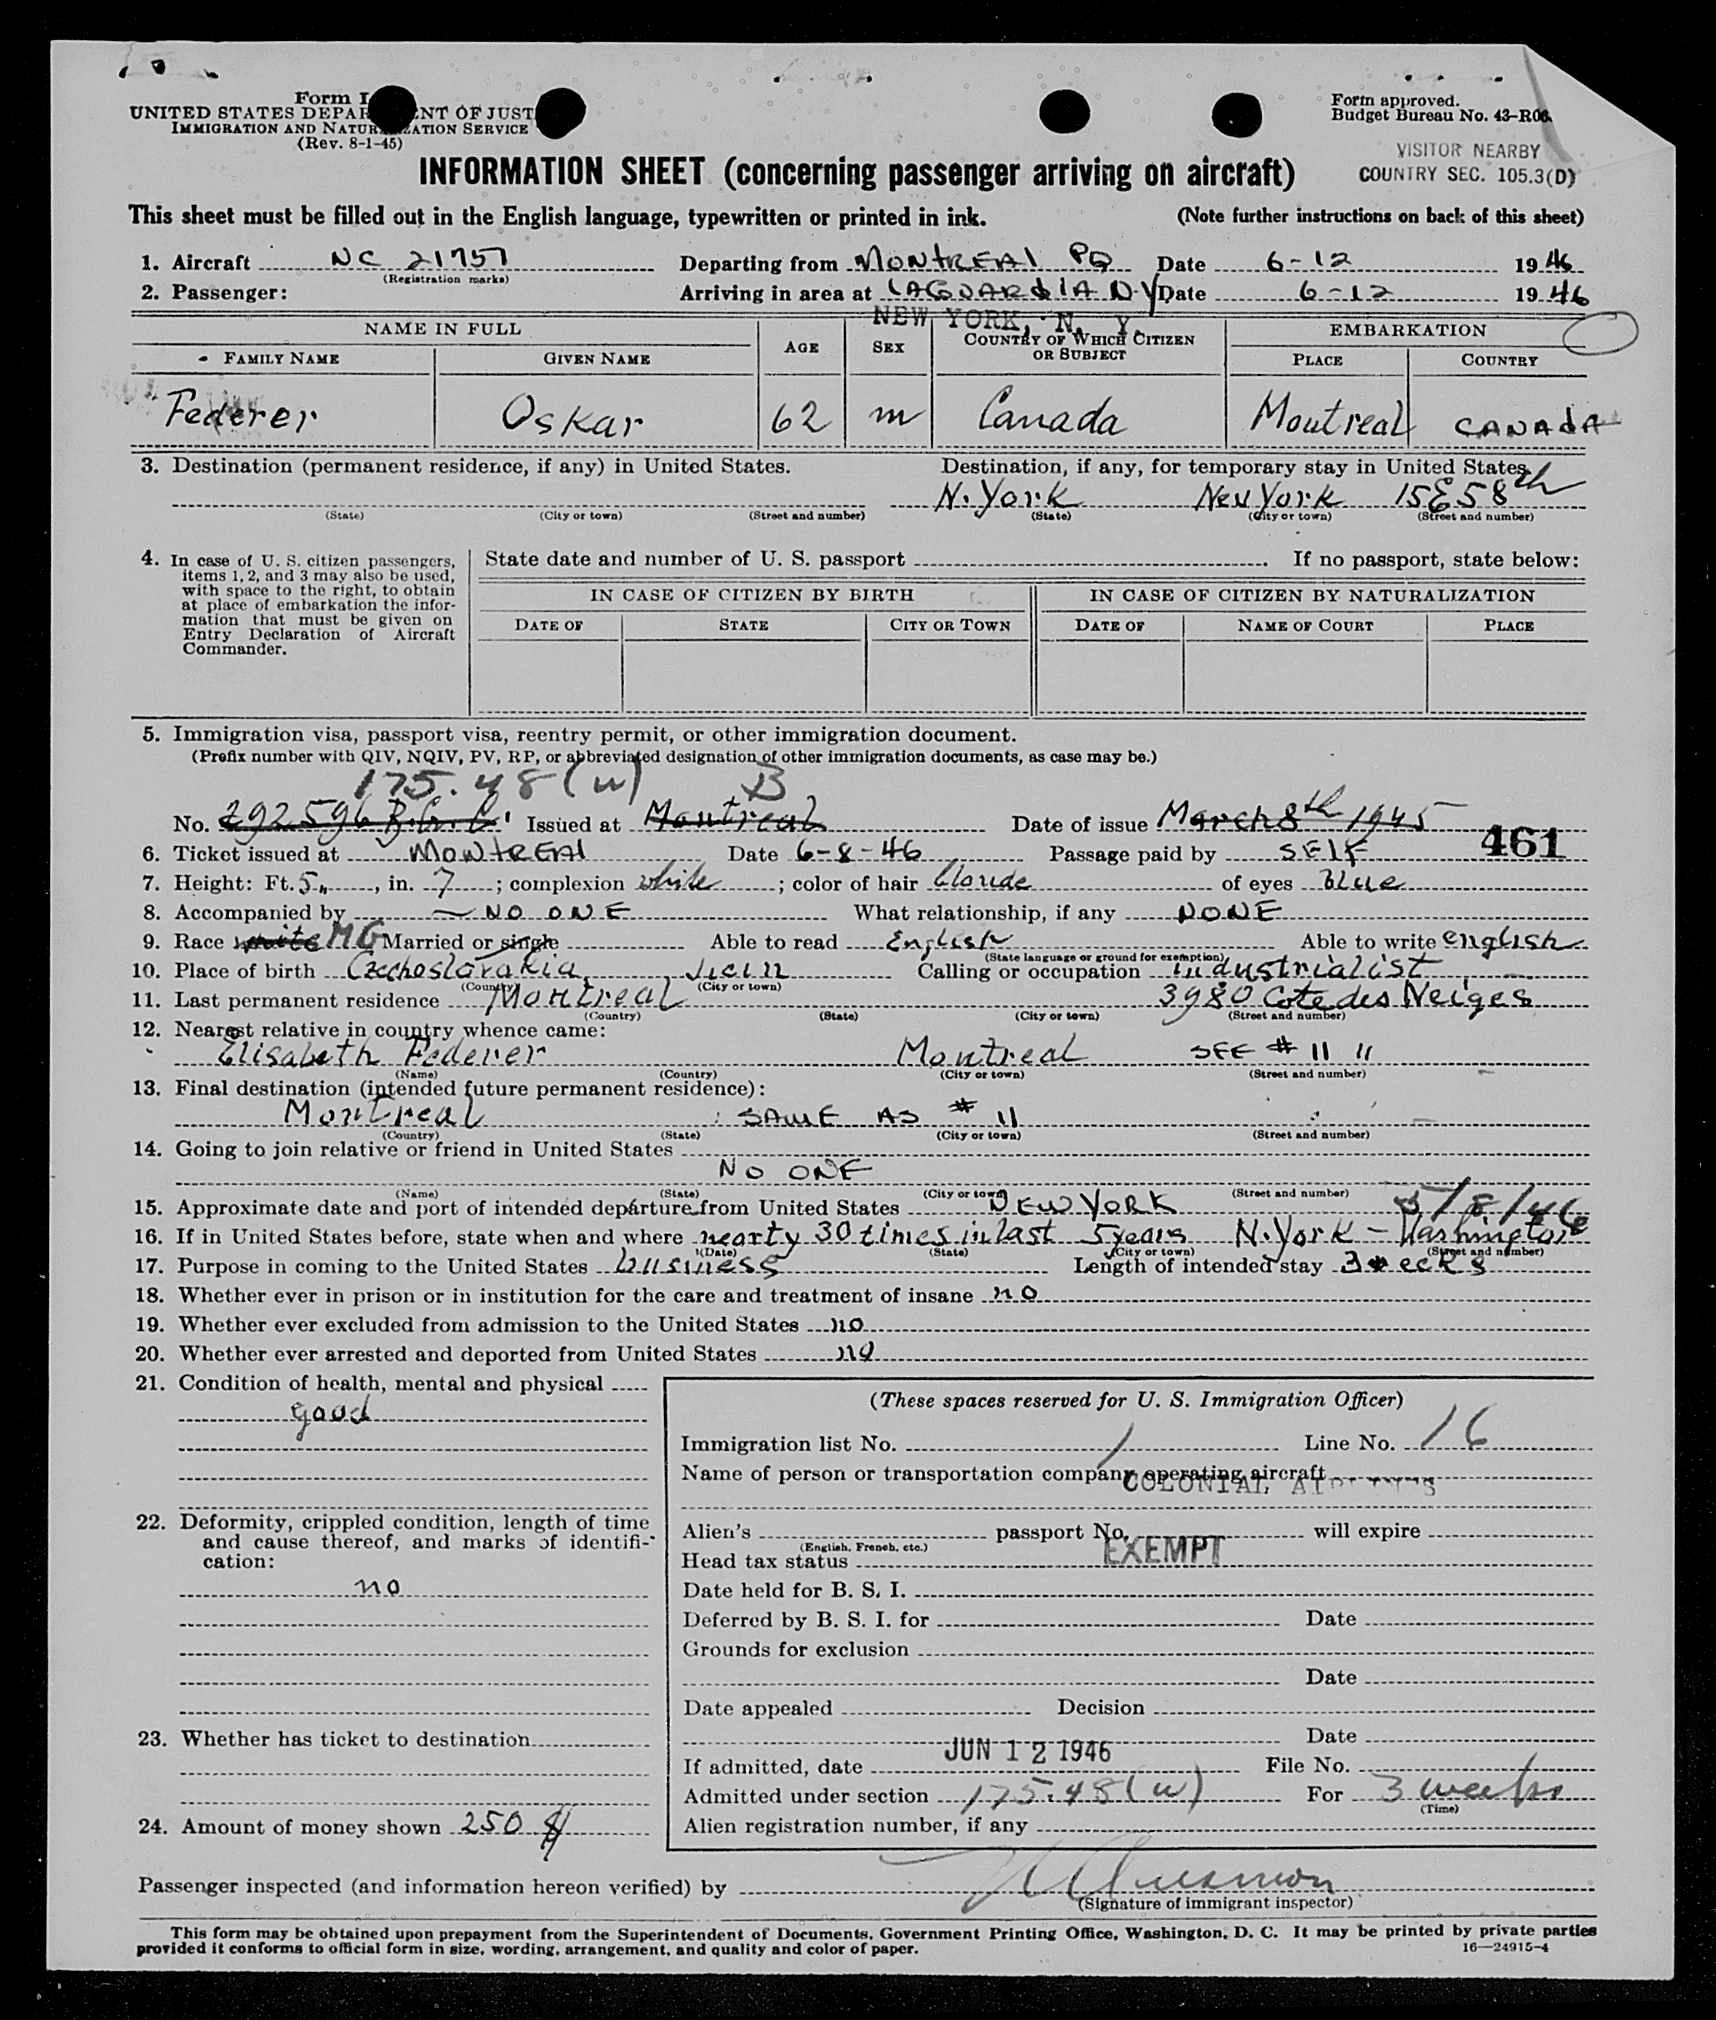 Form I
UNITED STATES DEPAR NT OF JUST
IMMIGRATION AND NATUR ATION SERVICE
(Rev. 8-1-45)
Form approved.
Budget Bureau No. 43-R06
VISITOR NEARBY
COUNTRY SEC. 105.3(D)
INFORMATION SHEET (concerning passenger arriving on aircraft)
This sheet must be filled out in the English language, typewritten or printed in ink. (Note further instructions on back of this sheet)
1. Aircraft NC 21757 Departing from MONTREAL PQ Date 6-12 1946
(Registration marks)
2. Passenger: Arriving in area at LAGUARDIA NY Date 6-12 1946
NEW YORK, N. Y.
NAME IN FULL AGE SEX COUNTRY OF WHICH CITIZEN OR SUBJECT EMBARKATION
FAMILY NAME GIVEN NAME PLACE COUNTRY
Federer Oskar 62 m Canada Montreal CANADA
3. Destination (permanent residence, if any) in United States. Destination, if any, for temporary stay in United States
N. York New York 15 E 58th
(State) (City or town) (Street and number) (State) (City or town) (Street and number)
4. In case of U. S. citizen passengers, items 1, 2, and 3 may also be used, with space to the right, to obtain at place of embarkation the information that must be given on Entry Declaration of Aircraft Commander.
State date and number of U. S. passport If no passport, state below:
IN CASE OF CITIZEN BY BIRTH IN CASE OF CITIZEN BY NATURALIZATION
DATE OF STATE CITY OR TOWN DATE OF NAME OF COURT PLACE
5. Immigration visa, passport visa, reentry permit, or other immigration document.
(Prefix number with QIV, NQIV, PV, RP, or abbreviated designation of other immigration documents, as case may be.)
175.48(w) B
No. 292596 B.Cr.C. Issued at Montreal Date of issue March 8th 1945
461
6. Ticket issued at MONTREAL Date 6-8-46 Passage paid by SELF
7. Height: Ft. 5, in. 7; complexion white; color of hair blonde of eyes Blue
8. Accompanied by NO ONE What relationship, if any NONE
9. Race white MG Married or single Able to read English Able to write english
(State language or ground for exemption)
10. Place of birth Czechoslovakia, Jicin Calling or occupation industrialist
(Country) (City or town)
11. Last permanent residence Montreal 3980 Cote des Neiges
(Country) (State) (City or town) (Street and number)
12. Nearest relative in country whence came:
Elisabeth Federer Montreal SEE # 11 "
(Name) (Country) (City or town) (Street and number)
13. Final destination (intended future permanent residence):
Montreal SAME AS # 11
(Country) (State) (City or town) (Street and number)
14. Going to join relative or friend in United States
NO ONE
(Name) (State) (City or town) (Street and number)
15. Approximate date and port of intended departure from United States NEW YORK 5/8/46
16. If in United States before, state when and where nearly 30 times in last 5 years N. York - Washington
(Date) (State) (City or town) (Street and number)
17. Purpose in coming to the United States business Length of intended stay 3 weeks
18. Whether ever in prison or in institution for the care and treatment of insane no
19. Whether ever excluded from admission to the United States no
20. Whether ever arrested and deported from United States no
21. Condition of health, mental and physical
good
22. Deformity, crippled condition, length of time and cause thereof, and marks of identification:
no
23. Whether has ticket to destination
24. Amount of money shown 250 $
(These spaces reserved for U. S. Immigration Officer)
Immigration list No. 1 Line No. 16
Name of person or transportation company operating aircraft
COLONIAL AIRLINES
Alien's passport No. will expire
(English, French, etc.)
Head tax status EXEMPT
Date held for B. S. I.
Deferred by B. S. I. for Date
Grounds for exclusion
Date
Date appealed Decision
Date
If admitted, date JUN 12 1946 File No.
Admitted under section 175.48(w) For 3 weeks
(Time)
Alien registration number, if any
Passenger inspected (and information hereon verified) by
(Signature of immigrant inspector)
This form may be obtained upon prepayment from the Superintendent of Documents, Government Printing Office, Washington, D. C. It may be printed by private parties
provided it conforms to official form in size, wording, arrangement, and quality and color of paper.
16—24915-4